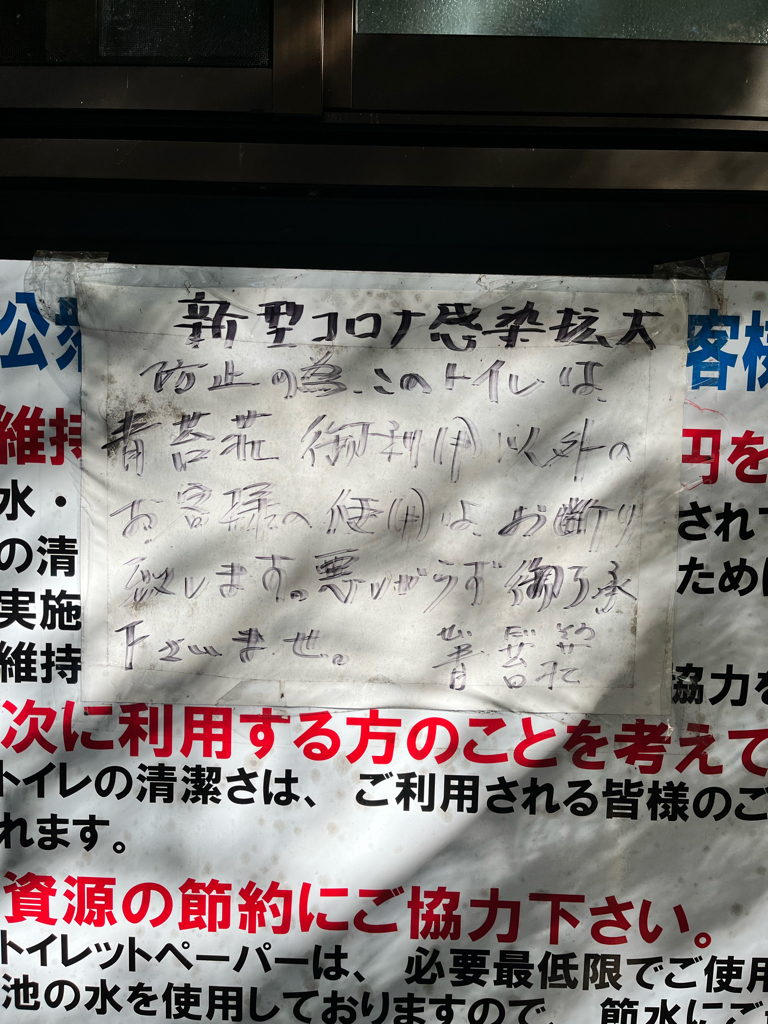 新型コロナ感染拡大
防止の為、このトイレは、
青苔荘御利用以外の
お客様の使用は、お断り
致します。悪しからず御了承
下さいませ。 青苔荘
公衆
客様
維持
円を
水・
され
の清
ため
実施
維持
協力を
次に利用する方のことを考えて
トイレの清潔さは、ご利用される皆様のご
れます。
資源の節約にご協力下さい。
トイレットペーパーは、必要最低限でご使用
池の水を使用しておりますので、節水にご